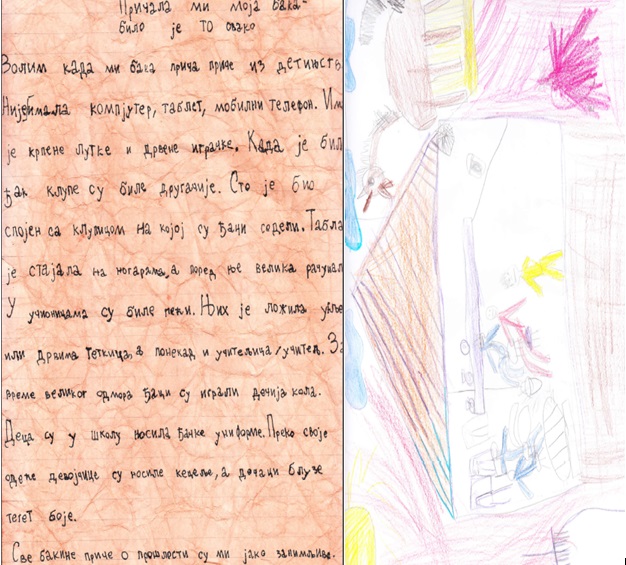 Причала ми моја бака-
било је то овако
Волим када ми бака прича приче из детињств
Није имала компјутер, таблет, мобилни телефон. Им
је крпене лутке и дрвене играчке. Када је бил
ђак клупе су биле другачије. Сто је био
спојен са клупицом на којој су ђаци содели. Табла
је стајала на ногарама, а поред ње велика рачунал
У учионицама су биле пећи. Њих је ложила угље
или дрвима теткица, а понекад и учитељица/учитељ. За
време великог одмора ђаци су играли дечија кола.
Деца су у школу носила ђачке униформе. Преко своје
одеће девојчице су носиле кецеље, а дечаци блузе
тегет боје.
Све бакине приче о прошлости су ми јако занимљиве.